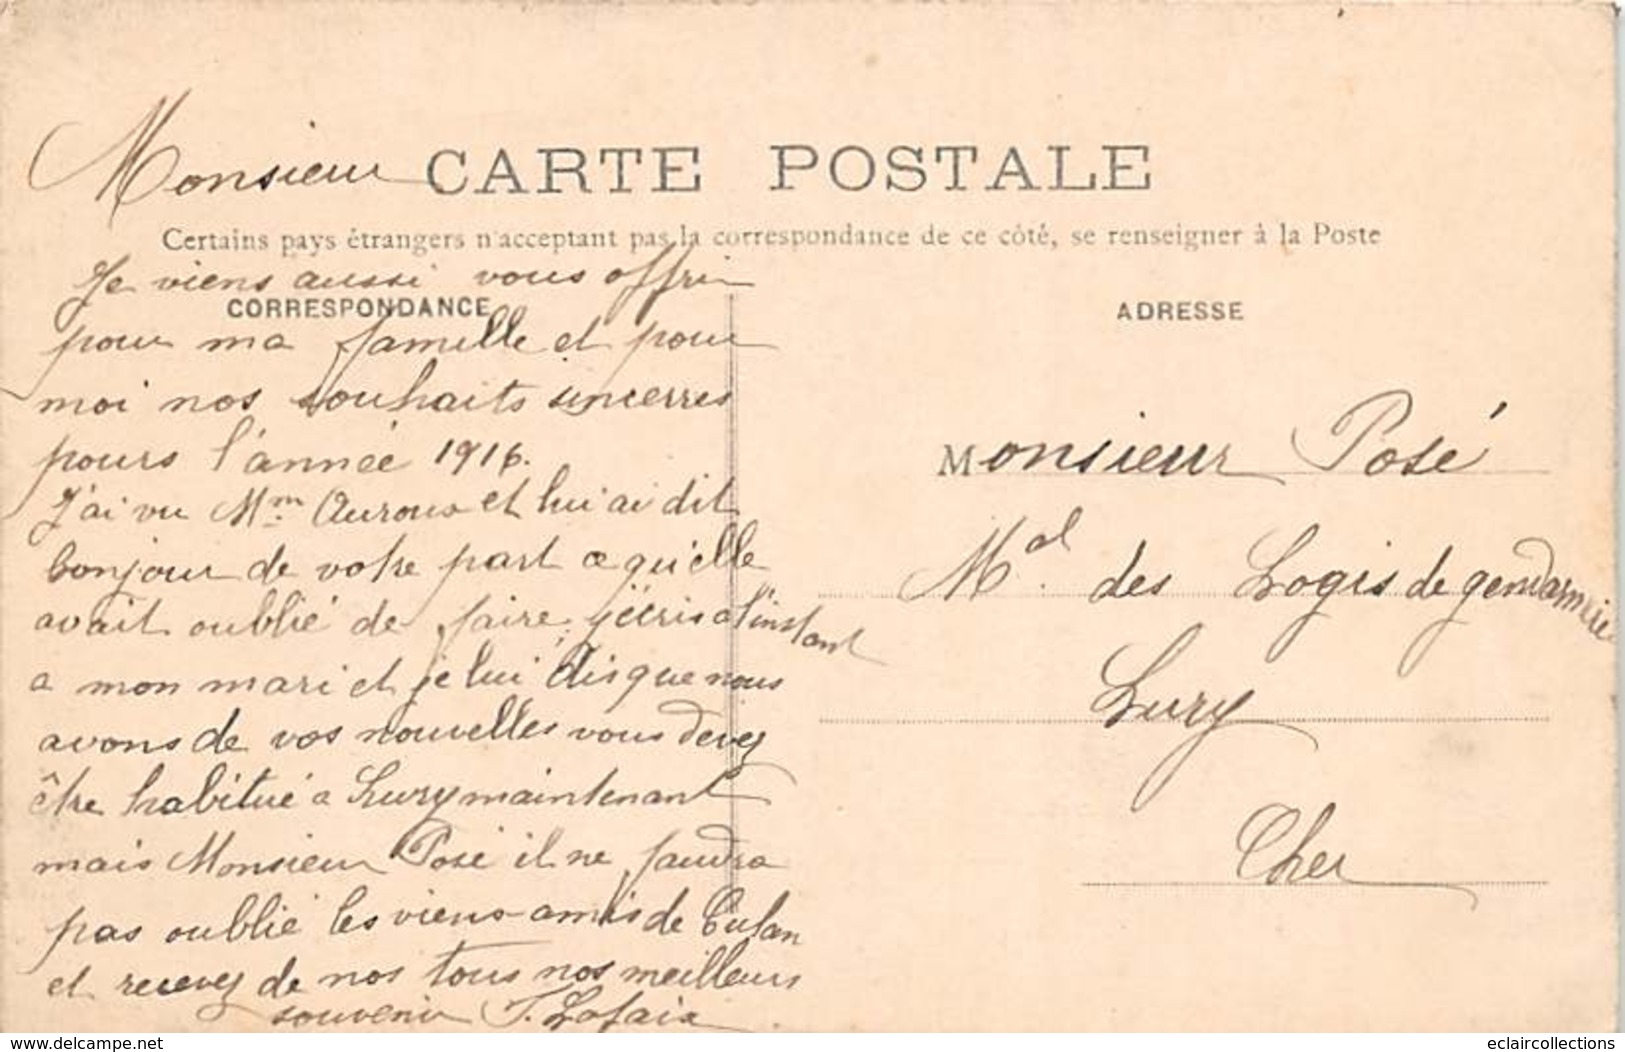 Monsieur
CARTE POSTALE
Certains pays étrangers n'acceptant pas la correspondance de ce côté, se renseigner à la Poste
CORRESPONDANCE
Je viens aussi vous offrir
pour ma famille et pour
moi nos souhaits sincerres
pours l'année 1916.
J'ai vu Mm Auroux et lui ai dit
bonjour de votre part ce qu'elle
avait oublié de faire, j'écris a l'instant
a mon mari et je lui dis que nous
avons de vos nouvelles vous devez
être habitué a Lury maintenant
mais Monsieur Posé il ne faudra
pas oublié les viens amis de Culan
et recevez de nos tous nos meilleurs
souvenir
ADRESSE
Monsieur Posé
Mal. des Logis de gendarmerie
Lury
Cher
www.delcampe.net
eclaircollections